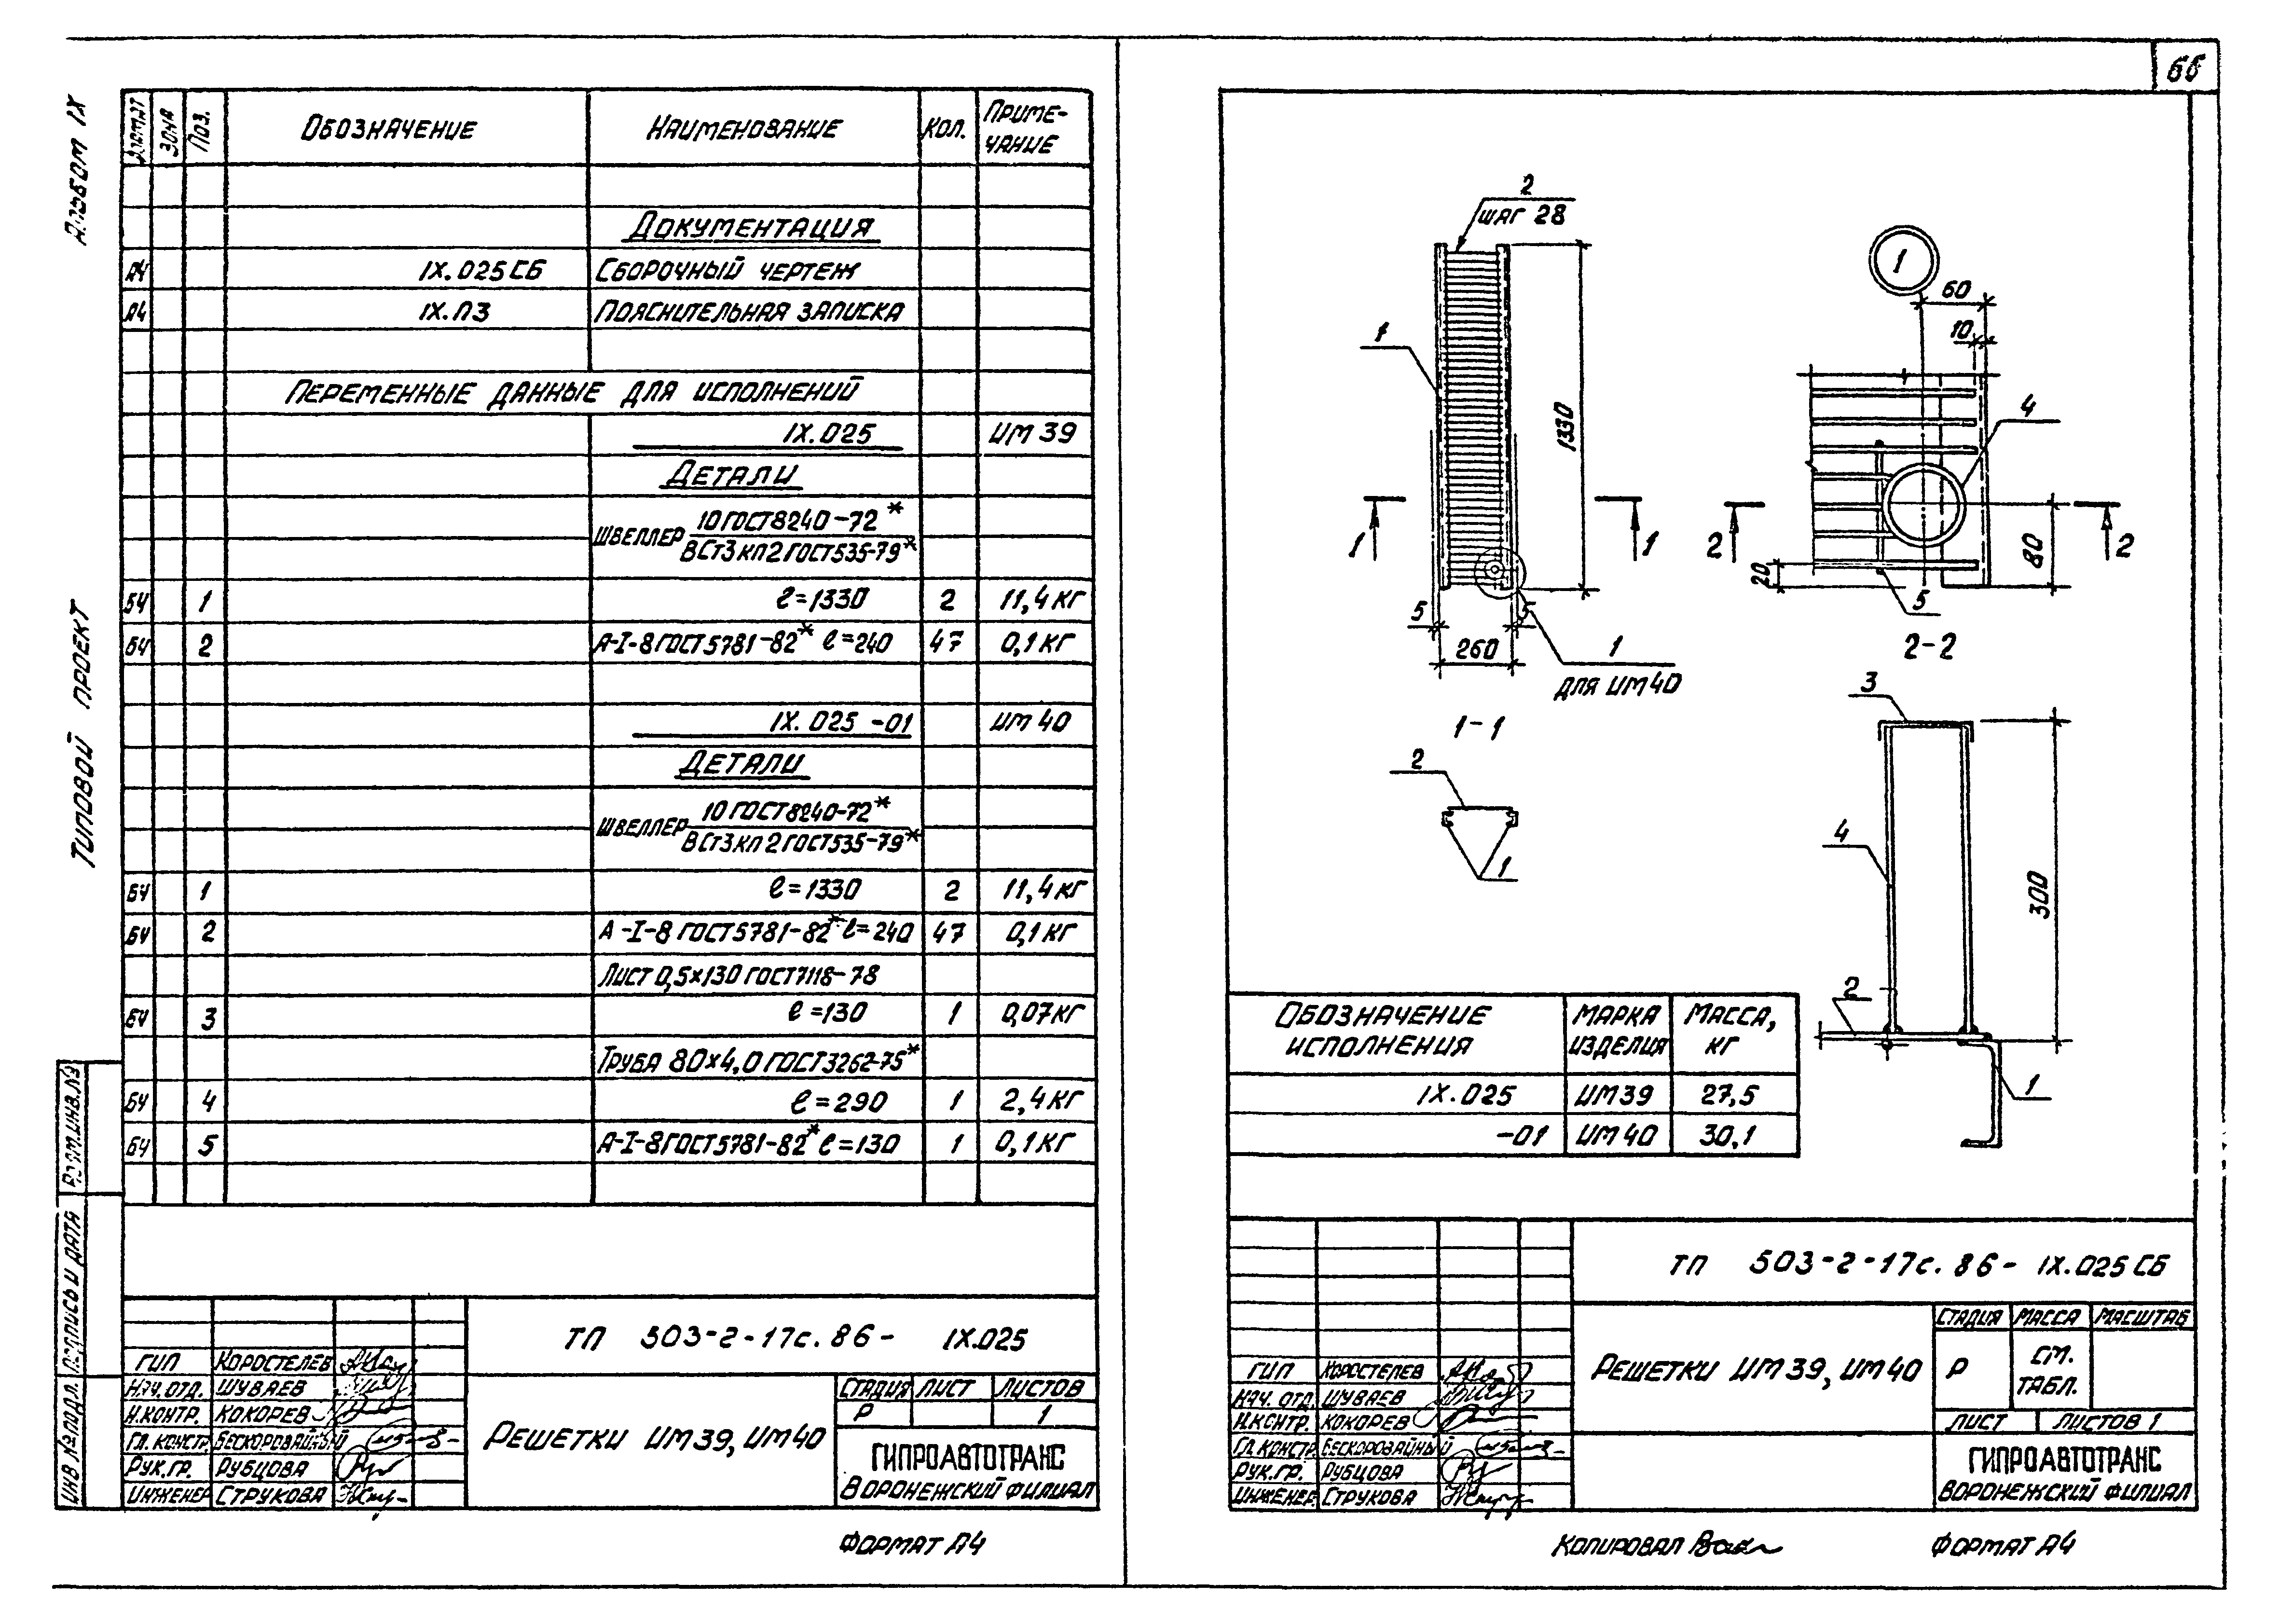 66
Альбом IX
Типовой проект
Формат
Зона
Поз.
Обозначение
Наименование
Кол.
Приме-
чание
Документация
А4 IX.025 СБ Сборочный чертеж
А4 IX.ПЗ Пояснительная записка
Переменные данные для исполнений
IX.025 ИМ 39
Детали
Швеллер 10 ГОСТ 8240-72*
В Ст3 кп 2 ГОСТ 535-79*
БЧ 1 ℓ=1330 2 11,4 кг
БЧ 2 А-I-8 ГОСТ 5781-82* ℓ=240 47 0,1 кг
IX.025-01 ИМ 40
Детали
Швеллер 10 ГОСТ 8240-72*
В Ст3 кп 2 ГОСТ 535-79*
БЧ 1 ℓ=1330 2 11,4 кг
БЧ 2 А-I-8 ГОСТ 5781-82* ℓ=240 47 0,1 кг
Лист 0,5×130 ГОСТ 7118-78
БЧ 3 ℓ=130 1 0,07 кг
Труба 80×4,0 ГОСТ 3262-75*
БЧ 4 ℓ=290 1 2,4 кг
БЧ 5 А-I-8 ГОСТ 5781-82* ℓ=130 1 0,1 кг
Взам.инв.№
Подпись и дата
Инв № подл.
ТП 503-2-17с.86- IX.025
ГИП Коростелев
Нач. отд. Шуваев
Н.контр. Кокорев
Гл. констр. Бескоровайный
Рук. гр. Рубцова
Инженер Струкова
Решетки ИМ 39, ИМ 40
Стадия Лист Листов
Р 1
ГИПРОАВТОТРАНС
Воронежский филиал
Формат А4
2
шаг 28
1
1330
1 1
5 5
260
1
для ИМ 40
1-1
2
1
1
60
10
4
2 2
80
20
5
2-2
3
4
300
2
1
Обозначение
исполнения
Марка
изделия
Масса,
кг
IX.025 ИМ 39 27,5
-01 ИМ 40 30,1
ТП 503-2-17с.86- IX.025 СБ
ГИП Коростелев
Нач. отд. Шуваев
Н.контр. Кокорев
Гл. констр. Бескоровайный
Рук. гр. Рубцова
Инженер Струкова
Решетки ИМ 39, ИМ 40
Стадия Масса Масштаб
Р См.
табл.
Лист Листов 1
ГИПРОАВТОТРАНС
Воронежский филиал
Копировал
Формат А4